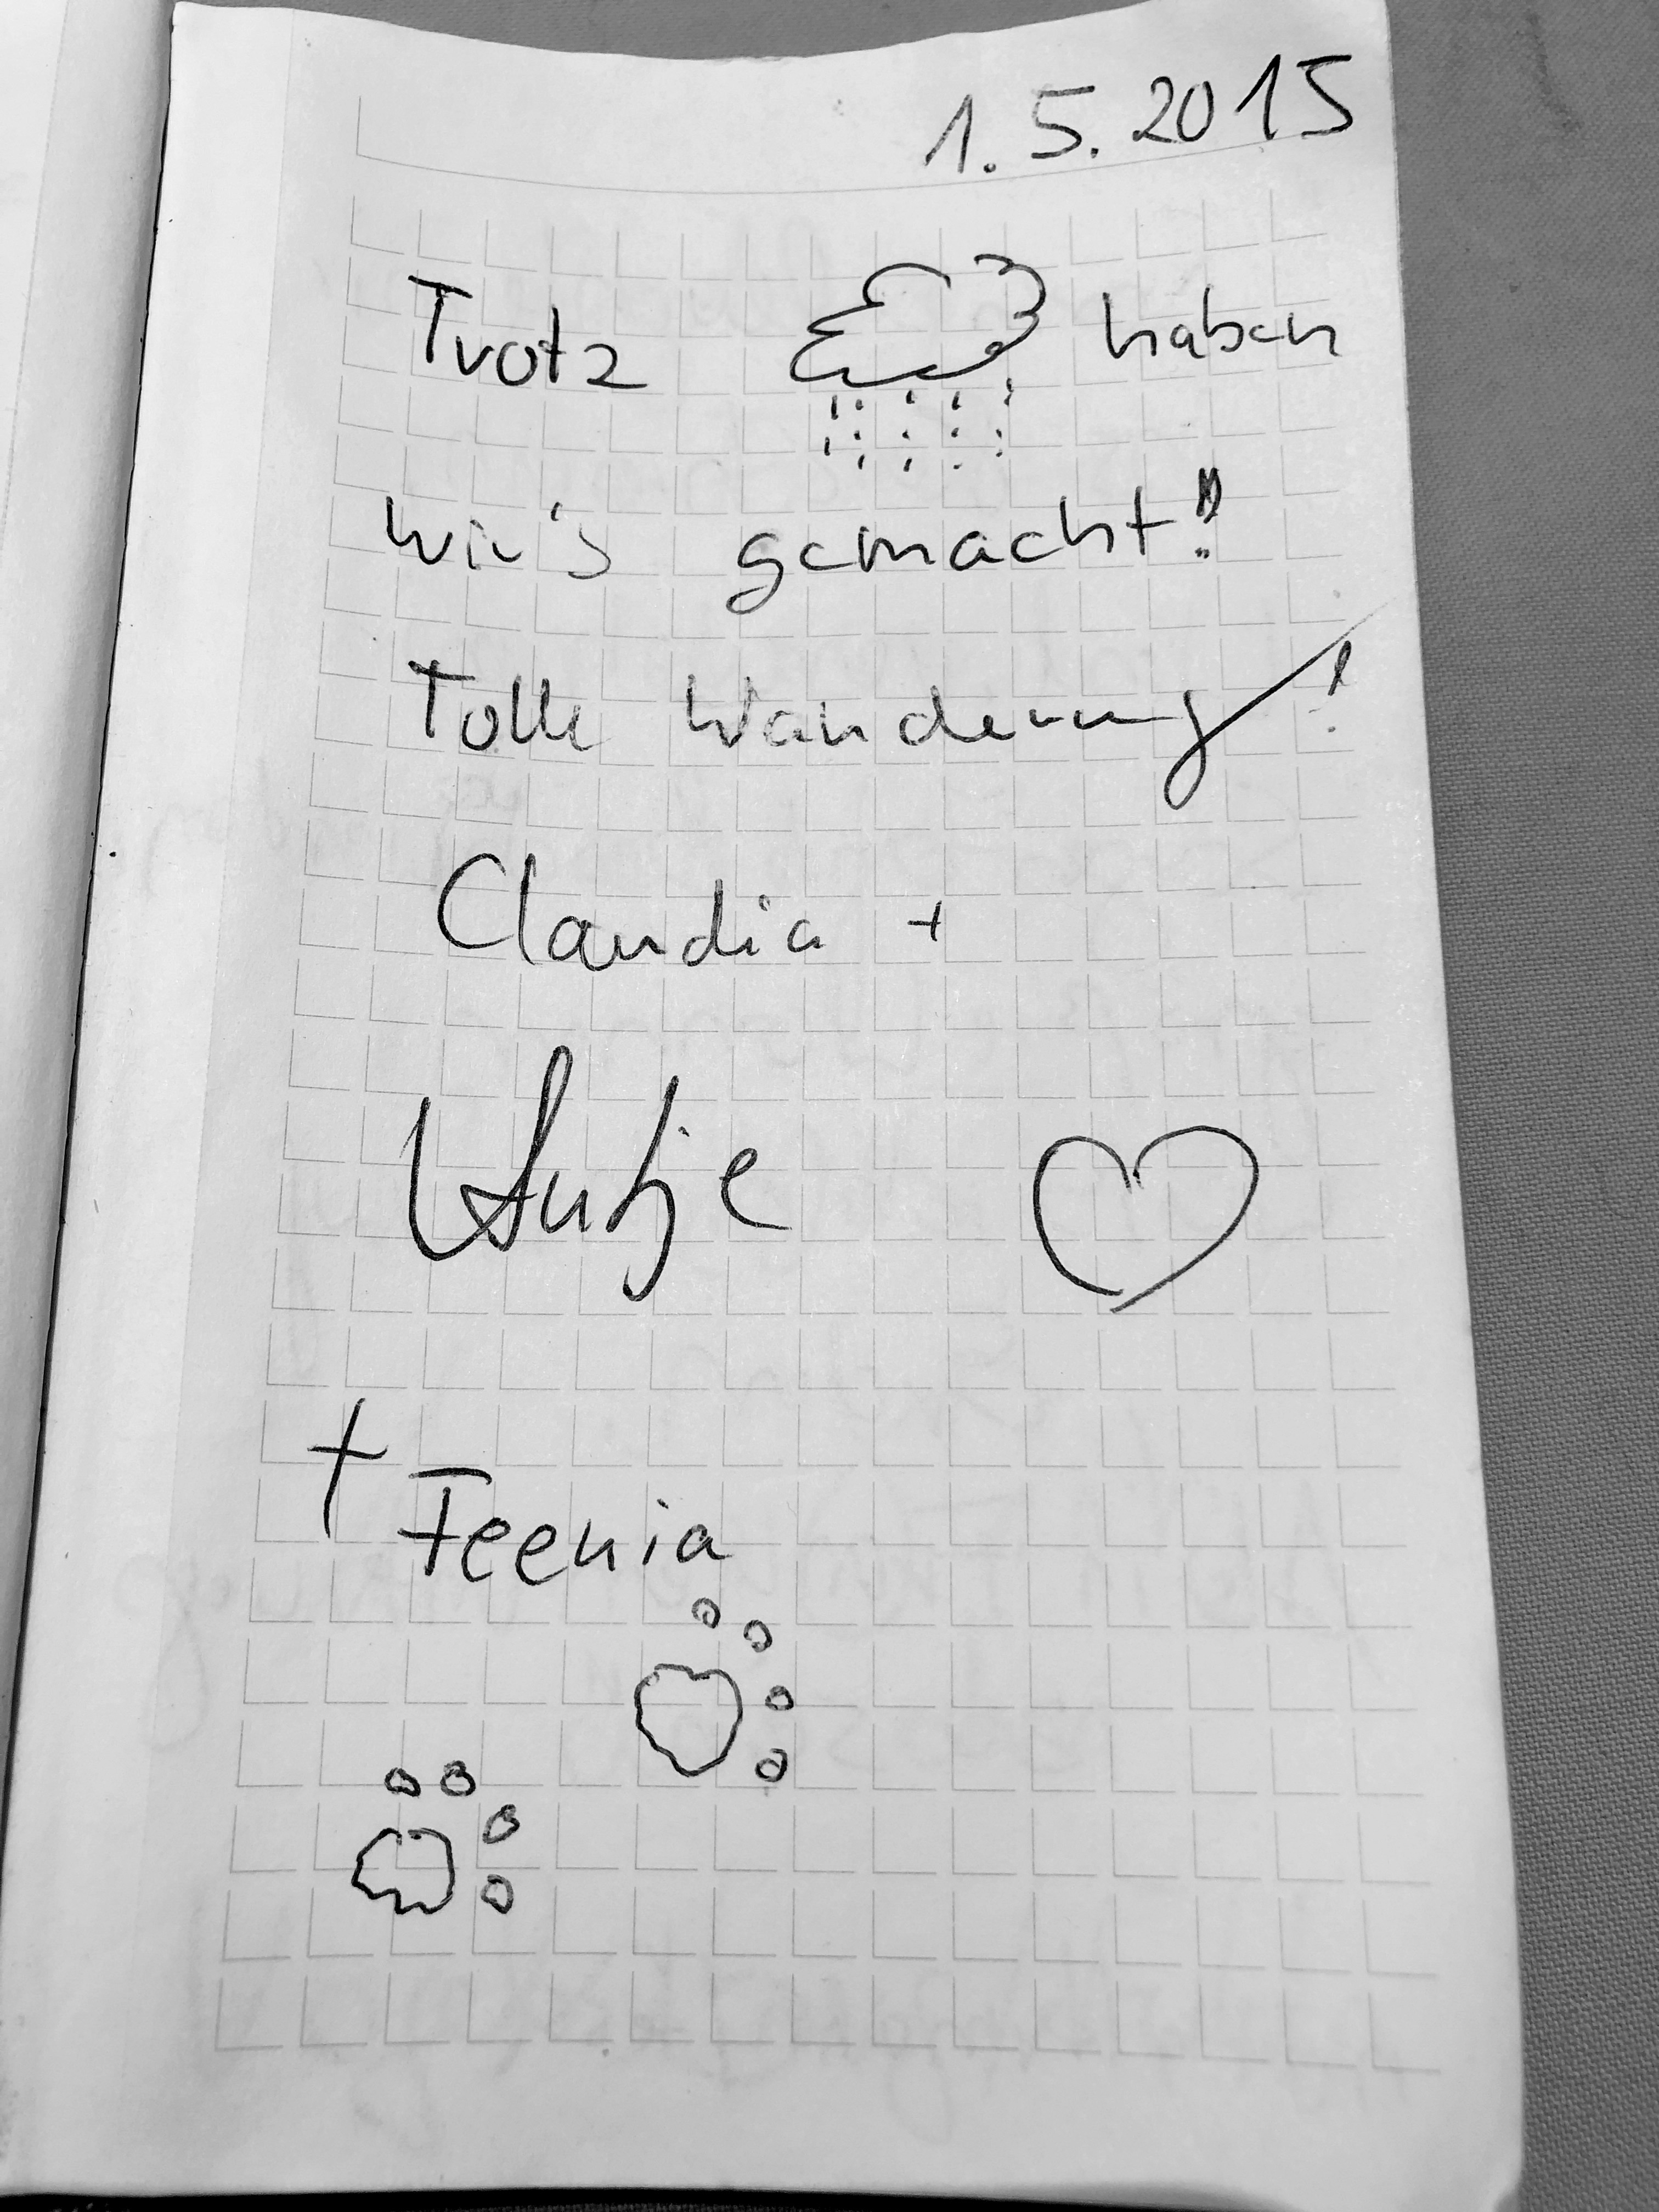 1.5.2015
Trotz haben
wir's gemacht!!
Tolle Wanderung!
Claudia +
Antje
+ Feenia